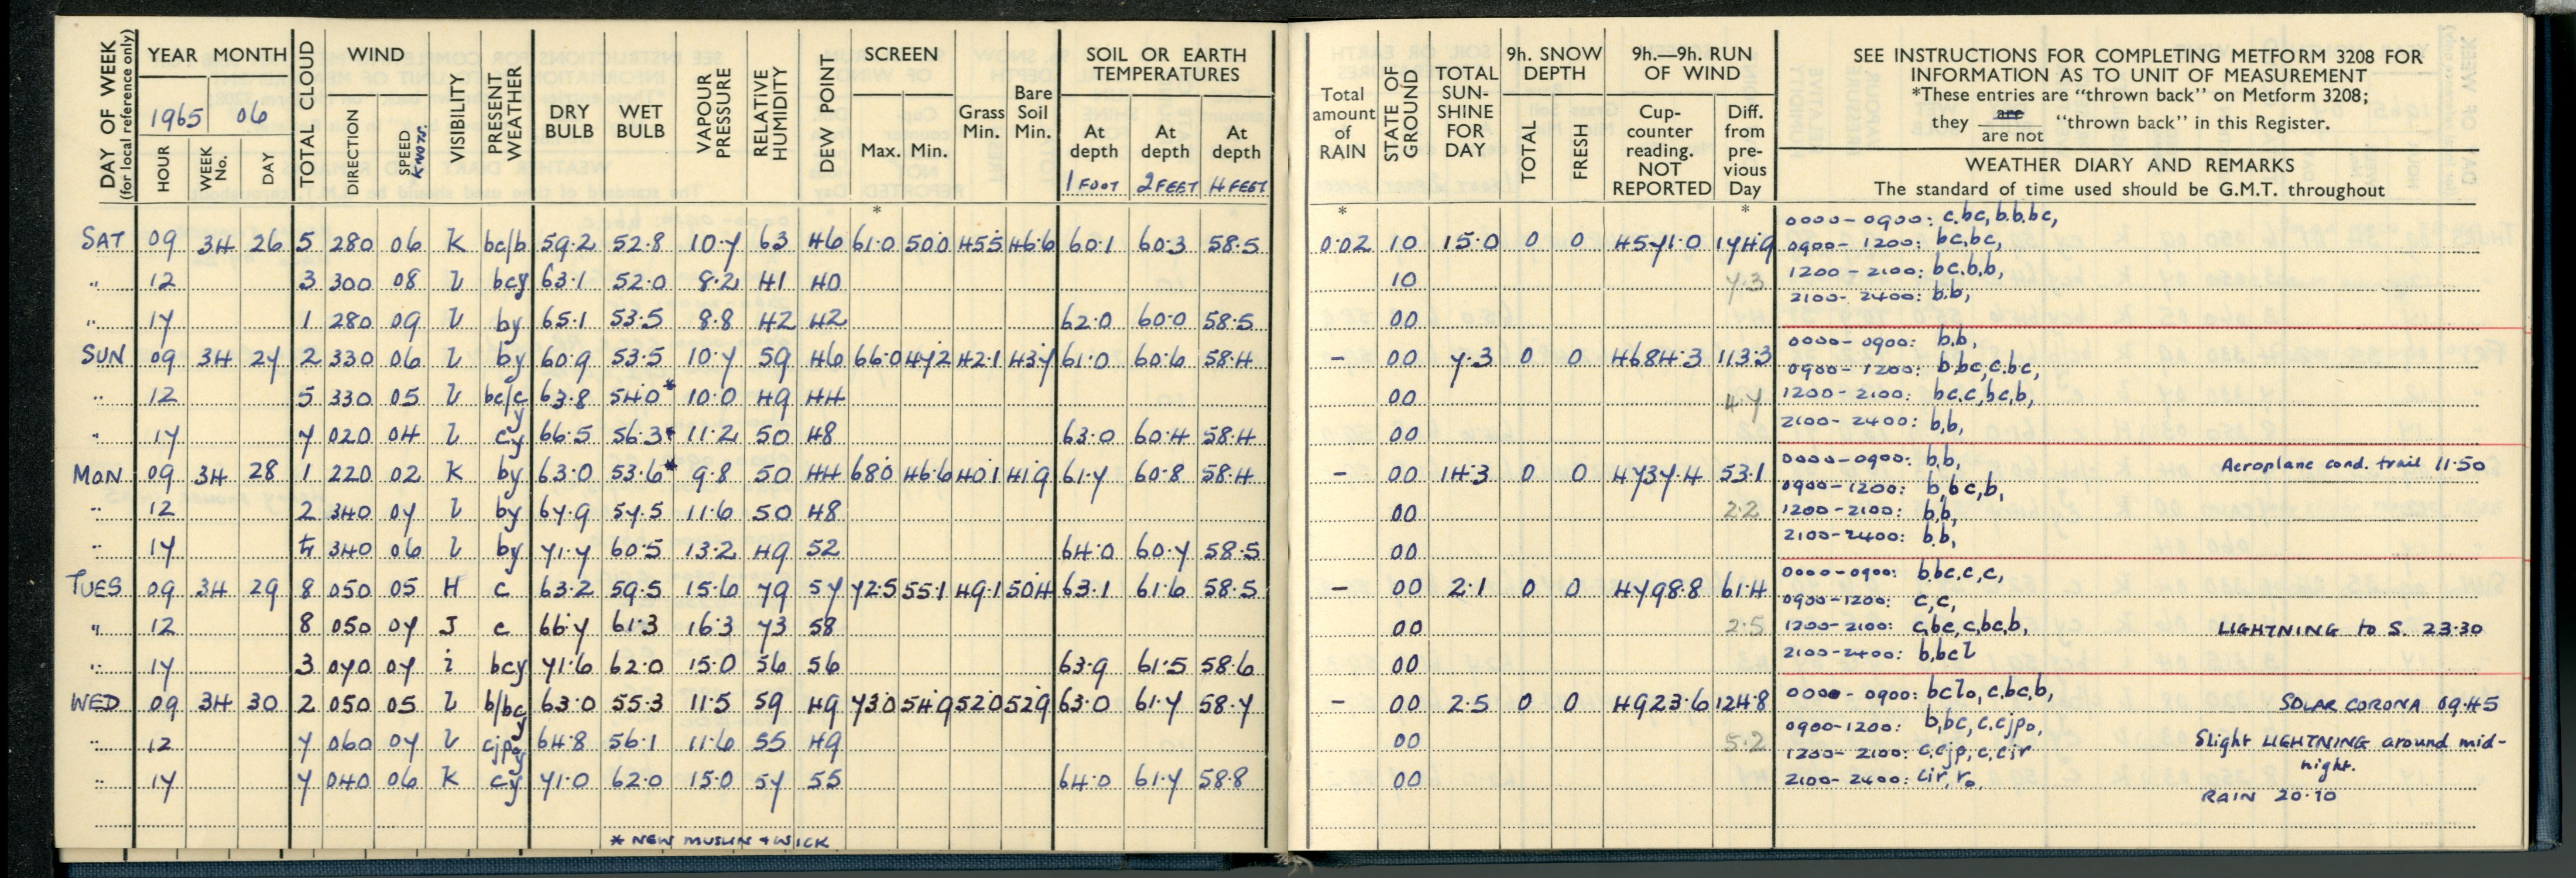 DAY OF WEEK (for local reference only) YEAR MONTH TOTAL CLOUD WIND VISIBILITY PRESENT WEATHER DRY BULB WET BULB VAPOUR PRESSURE RELATIVE HUMIDITY DEW POINT SCREEN Grass Min. Bare Soil Min. SOIL OR EARTH TEMPERATURES
1965 06
HOUR WEEK No. DAY DIRECTION SPEED KNOTS. Max. Min. At depth At depth At depth
1 FOOT 2 FEET 4 FEET
Total amount of RAIN STATE OF GROUND TOTAL SUN-SHINE FOR DAY 9h. SNOW DEPTH 9h.—9h. RUN OF WIND
TOTAL FRESH Cup-counter reading. NOT REPORTED Diff. from pre-vious Day
SEE INSTRUCTIONS FOR COMPLETING METFORM 3208 FOR
INFORMATION AS TO UNIT OF MEASUREMENT
*These entries are "thrown back" on Metform 3208;
they are / are not "thrown back" in this Register.
WEATHER DIARY AND REMARKS
The standard of time used should be G.M.T. throughout
* * *
SAT 09 34 26 5 280 06 K bc/b 59.2 52.8 10.7 63 46 61.0 50.0 45.5 46.6 60.1 60.3 58.5 0.02 10 15.0 0 0 4571.0 174.9
0000-0900: c.bc, b.b.bc,
0900-1200: bc,bc,
" 12 3 300 08 l bcy 63.1 52.0 8.2 41 40 10 7.3
1200-2100: bc.b.b,
2100-2400: b.b,
" 17 1 280 09 l by 65.1 53.5 8.8 42 42 62.0 60.0 58.5 00
SUN 09 34 27 2 330 06 l by 60.9 53.5 10.7 59 46 66.0 47.2 42.1 43.7 61.0 60.6 58.4 - 00 7.3 0 0 4684.3 113.3
0000-0900: b.b,
0900-1200: b.bc,c.bc,
" 12 5 330 05 l bc/cy 63.8 54.0* 10.0 49 44 00 4.7
1200-2100: bc.c,bc,b,
2100-2400: b,b,
" 17 7 020 04 l cy 66.5 56.3* 11.2 50 48 63.0 60.4 58.4 00
MON 09 34 28 1 220 02 K by 63.0 53.6* 9.8 50 44 68.0 46.6 40.1 41.9 61.7 60.8 58.4 - 00 14.3 0 0 4737.4 53.1
0000-0900: b.b, Aeroplane cond. trail 11.50
0900-1200: b,bc,b,
" 12 2 340 07 l by 67.9 57.5 11.6 50 48 00 2.2
1200-2100: b,b,
2100-2400: b.b,
" 17 340 06 l by 71.7 60.5 13.2 49 52 64.0 60.7 58.5 00
TUES 09 34 29 8 050 05 H c 63.2 59.5 15.6 79 57 72.5 55.1 49.1 50.4 63.1 61.6 58.5 - 00 2.1 0 0 4798.8 61.4
0000-0900: b.bc.c,c,
0900-1200: c,c,
" 12 8 050 07 J c 66.7 61.3 16.3 73 58 00 2.5
1200-2100: c,bc,c,bc,b, LIGHTNING to S. 23.30
2100-2400: b,bcl
" 17 3 070 07 i bcy 71.6 62.0 15.0 56 56 63.9 61.5 58.6 00
WED 09 34 30 2 050 05 l b/bcy 63.0 55.3 11.5 59 49 73.0 54.9 52.0 52.9 63.0 61.7 58.7 - 00 2.5 0 0 4923.6 124.8
0000-0900: bclo,c,bc,b, SOLAR CORONA 09.45
0900-1200: b,bc,c.cjpo,
" 12 7 060 07 l cjpoy 64.8 56.1 11.6 55 49 00 5.2
1200-2100: c.cjp,c,cir Slight LIGHTNING around mid-
night.
2100-2400: cir,ro,
" 17 7 040 06 K cy 71.0 62.0 15.0 57 55 64.0 61.7 58.8 00
RAIN 20.10
* NEW MUSLIN + WICK